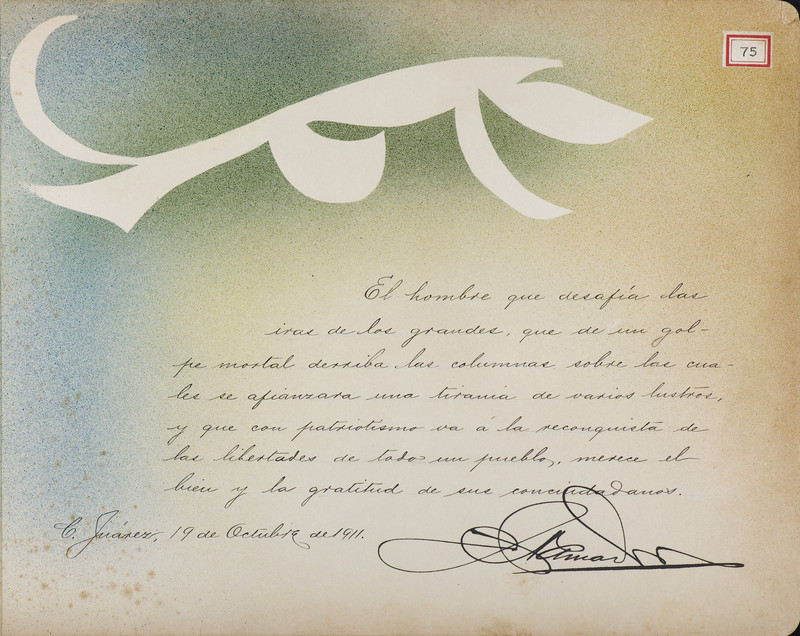 75
El hombre que desafía las
iras de los grandes, que de un gol-
pe mortal derriba las columnas sobre las cua-
les se afianzara una tiranía de varios lustros,
y que con patriotismo va á la reconquista de
las libertades de todo un pueblo, merece el
bien y la gratitud de sus conciudadanos.
C. Juárez, 19 de Octubre de 1911.